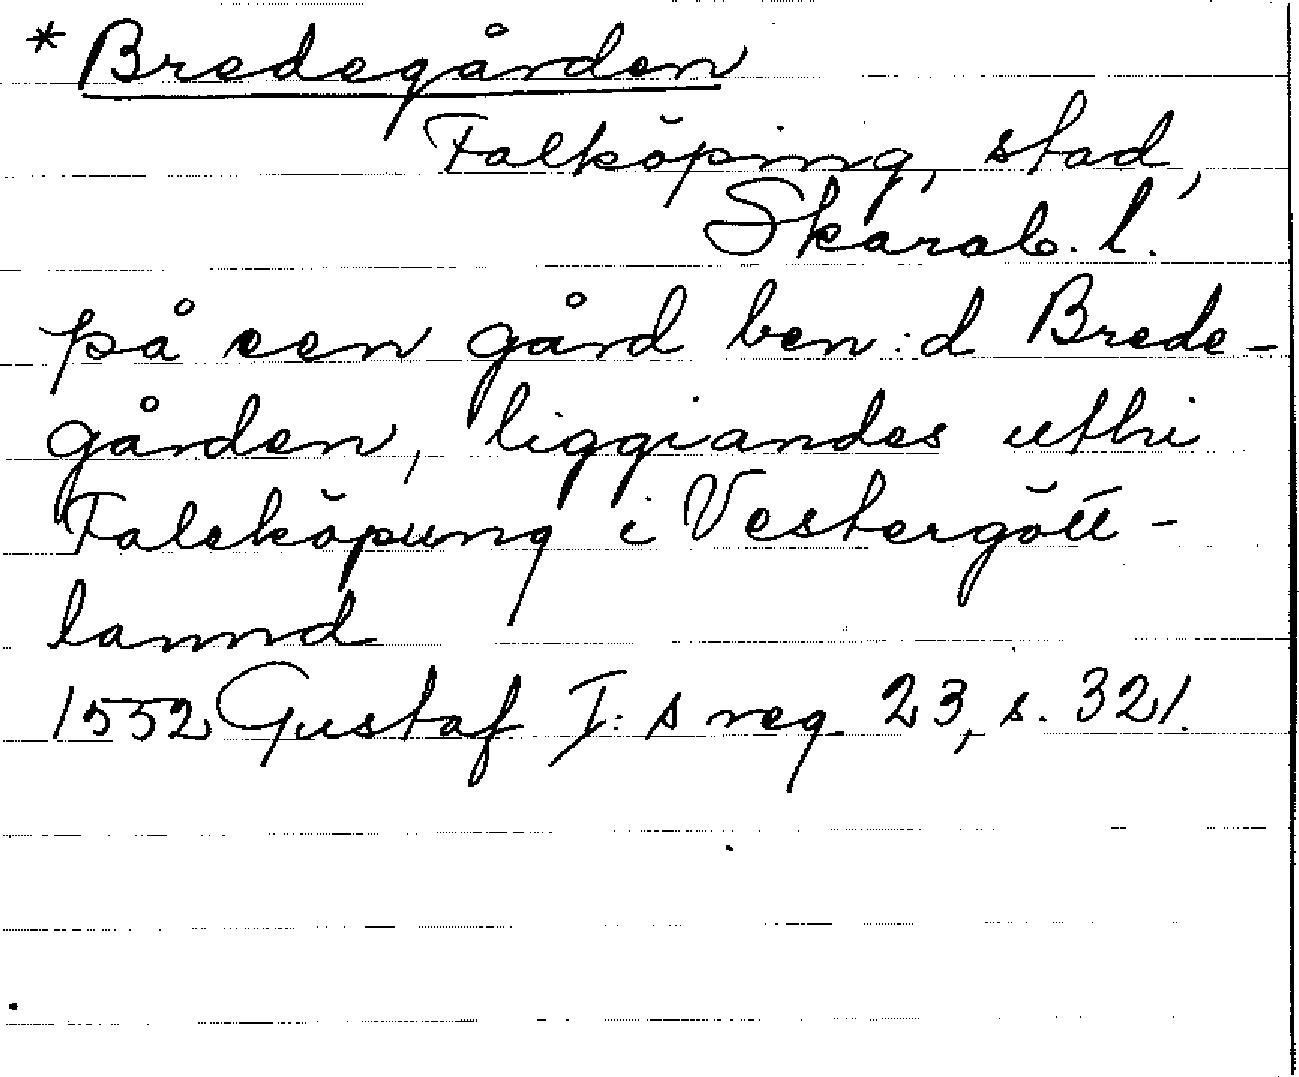 * Bredegården
Falköping, stad,
Skarab. l.
på een gård ben:d Brede-
gården, liggiandes uthi
Falcköpung i Vestergött-
lannd
1552 Gustaf I:s reg. 23, s. 321.